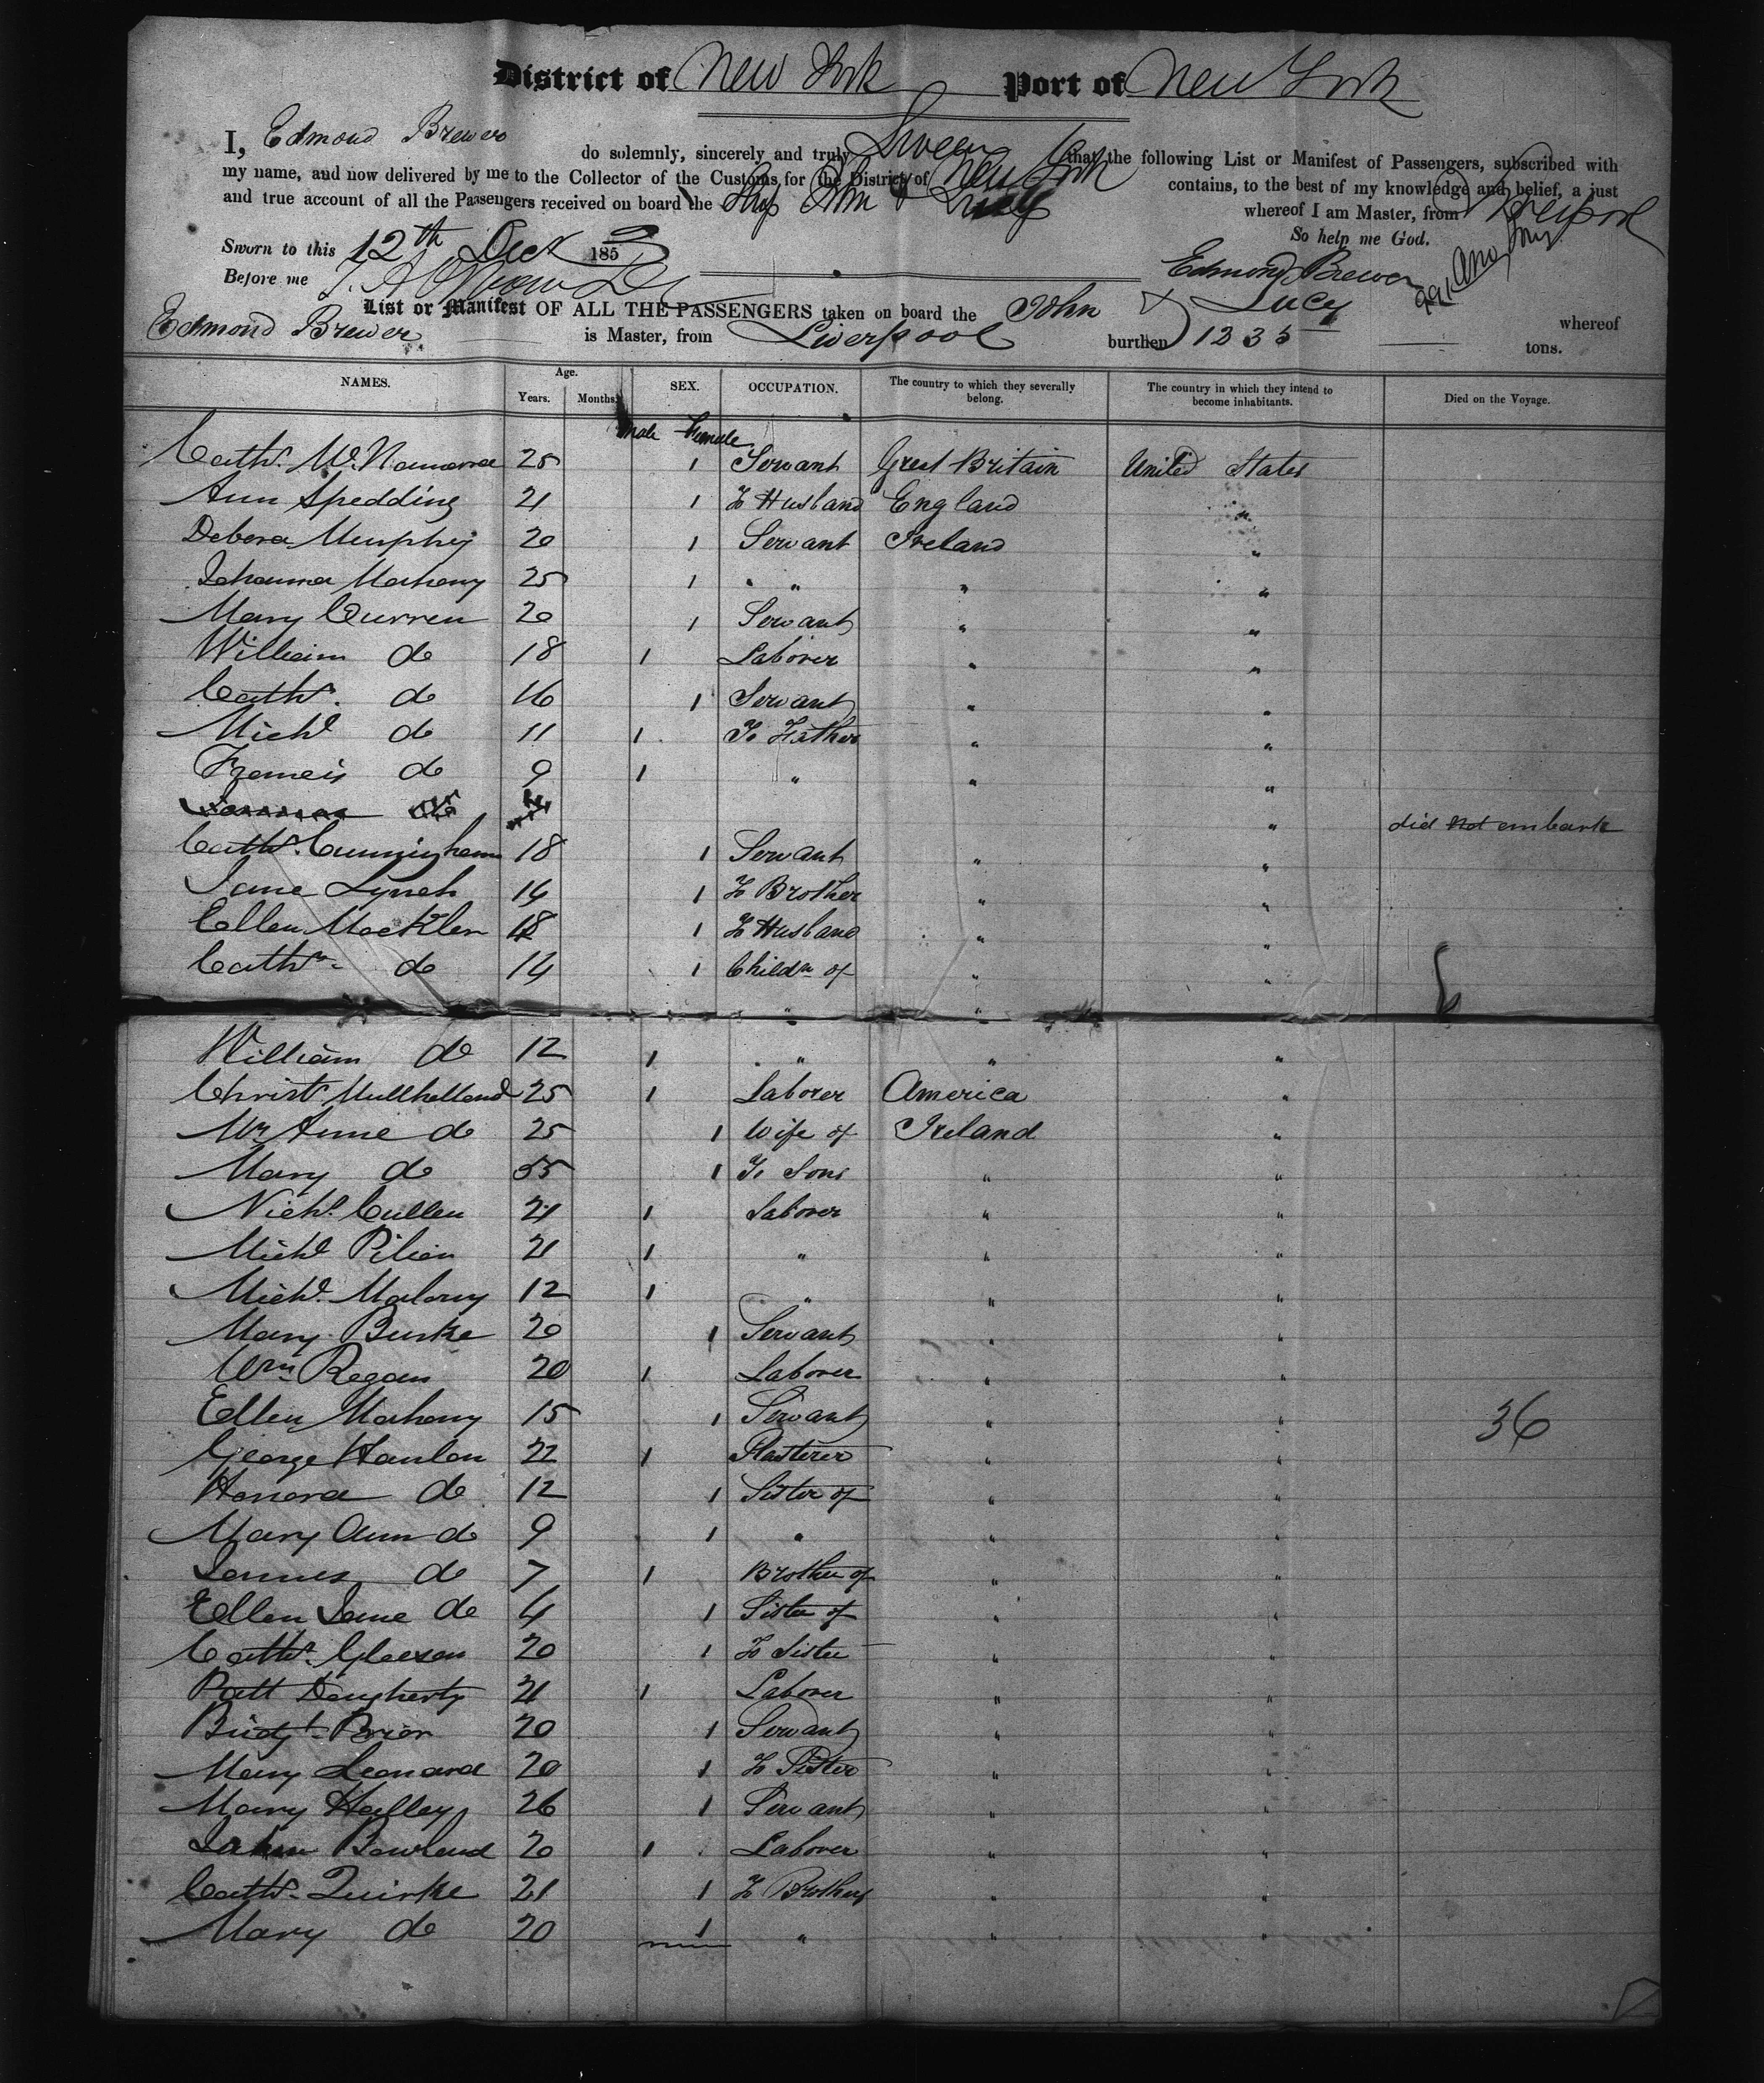 District of New York Port of New York
I, Edmond Brewer do solemnly, sincerely and truly Swear that the following List or Manifest of Passengers, subscribed with
my name, and now delivered by me to the Collector of the Customs for the District of New York contains, to the best of my knowledge and belief, a just
and true account of all the Passengers received on board the Ship John & Lucy whereof I am Master, from Liverpool
So help me God.
Sworn to this 12th Dect 1853
Edmond Brewer
Before me
List or Manifest OF ALL THE PASSENGERS taken on board the John & Lucy whereof
Edmond Brewer is Master, from Liverpool burthen 1235 tons.
NAMES. Age. Years. Months. SEX. OCCUPATION. The country to which they severally belong. The country in which they intend to become inhabitants. Died on the Voyage.
Male Female
Cathn. McNamara 25 1 Servant Great Britain United States
Ann Spedding 21 1 To Husband England "
Debora Murphy 20 1 Servant Ireland "
Johanna Mahony 25 1 " " "
Mary Curren 20 1 Servant " "
William do 18 1 Laborer " "
Cathn. do 16 1 Servant " "
Michl do 11 1 To Father " "
Francis do 9 1 " " "
do " did not embark
Cathn. Cunningham 18 1 Servant " "
Jane Lynch 14 1 To Brother " "
Ellen Mockler 18 1 To Husband " "
Cathn. do 14 1 Childn of " "
" "
William do 12 1 " " "
Christ Mullholland 25 1 Laborer America "
Mrs Anne do 25 1 Wife of Ireland "
Mary do 55 1 To Sons " "
Nichl. Cullen 21 1 Laborer " "
Michl Pilion 21 1 " " "
Michl. Malony 12 1 " " "
Mary Burke 20 1 Servant " "
Wm Regan 20 1 Laborer " "
Ellen Mahony 15 1 Servant " " 36
George Hanlon 22 1 Plasterer " "
Honora do 12 1 Sister of " "
Mary Ann do 9 1 " " "
James do 7 1 Brother of " "
Ellen Jane do 4 1 Sister of " "
Cathn. Gleeson 20 1 To Sister " "
Patt Dougherty 21 1 Laborer " "
Bridgt. Brien 20 1 Servant " "
Mary Leonard 20 1 To Sister " "
Mary Halley 26 1 Servant " "
John Rowland 20 1 Laborer " "
Cathn. Quirke 21 1 To Brother " "
Mary do 20 1 " " "